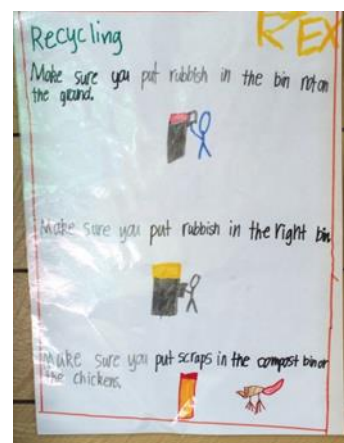 REX
Recycling
Make sure you put rubbish in the bin not on
the ground.
Make sure you put rubbish in the right bin
Make sure you put scraps in the compost bin or
the chickens.